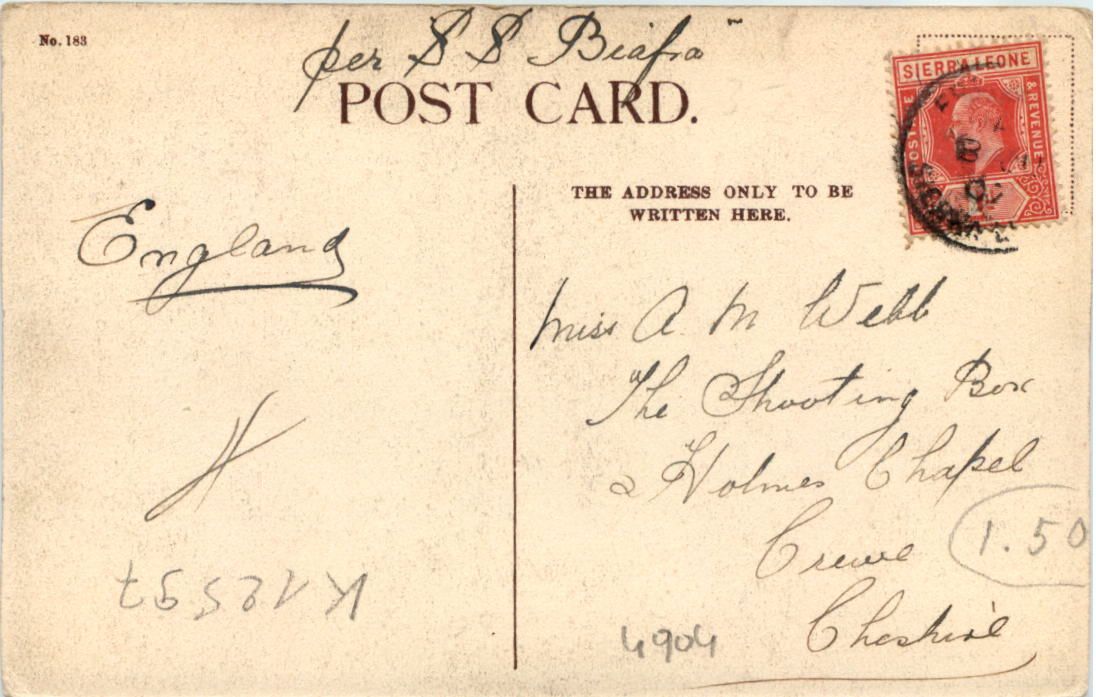 No. 183
per S S Biafra"
POST CARD.
SIERRA LEONE
POSTAGE
& REVENUE
THE ADDRESS ONLY TO BE
WRITTEN HERE.
England
Miss A M Webb
The Shooting Box
Holmes Chapel
Crewe
Cheshire
1.50
4904